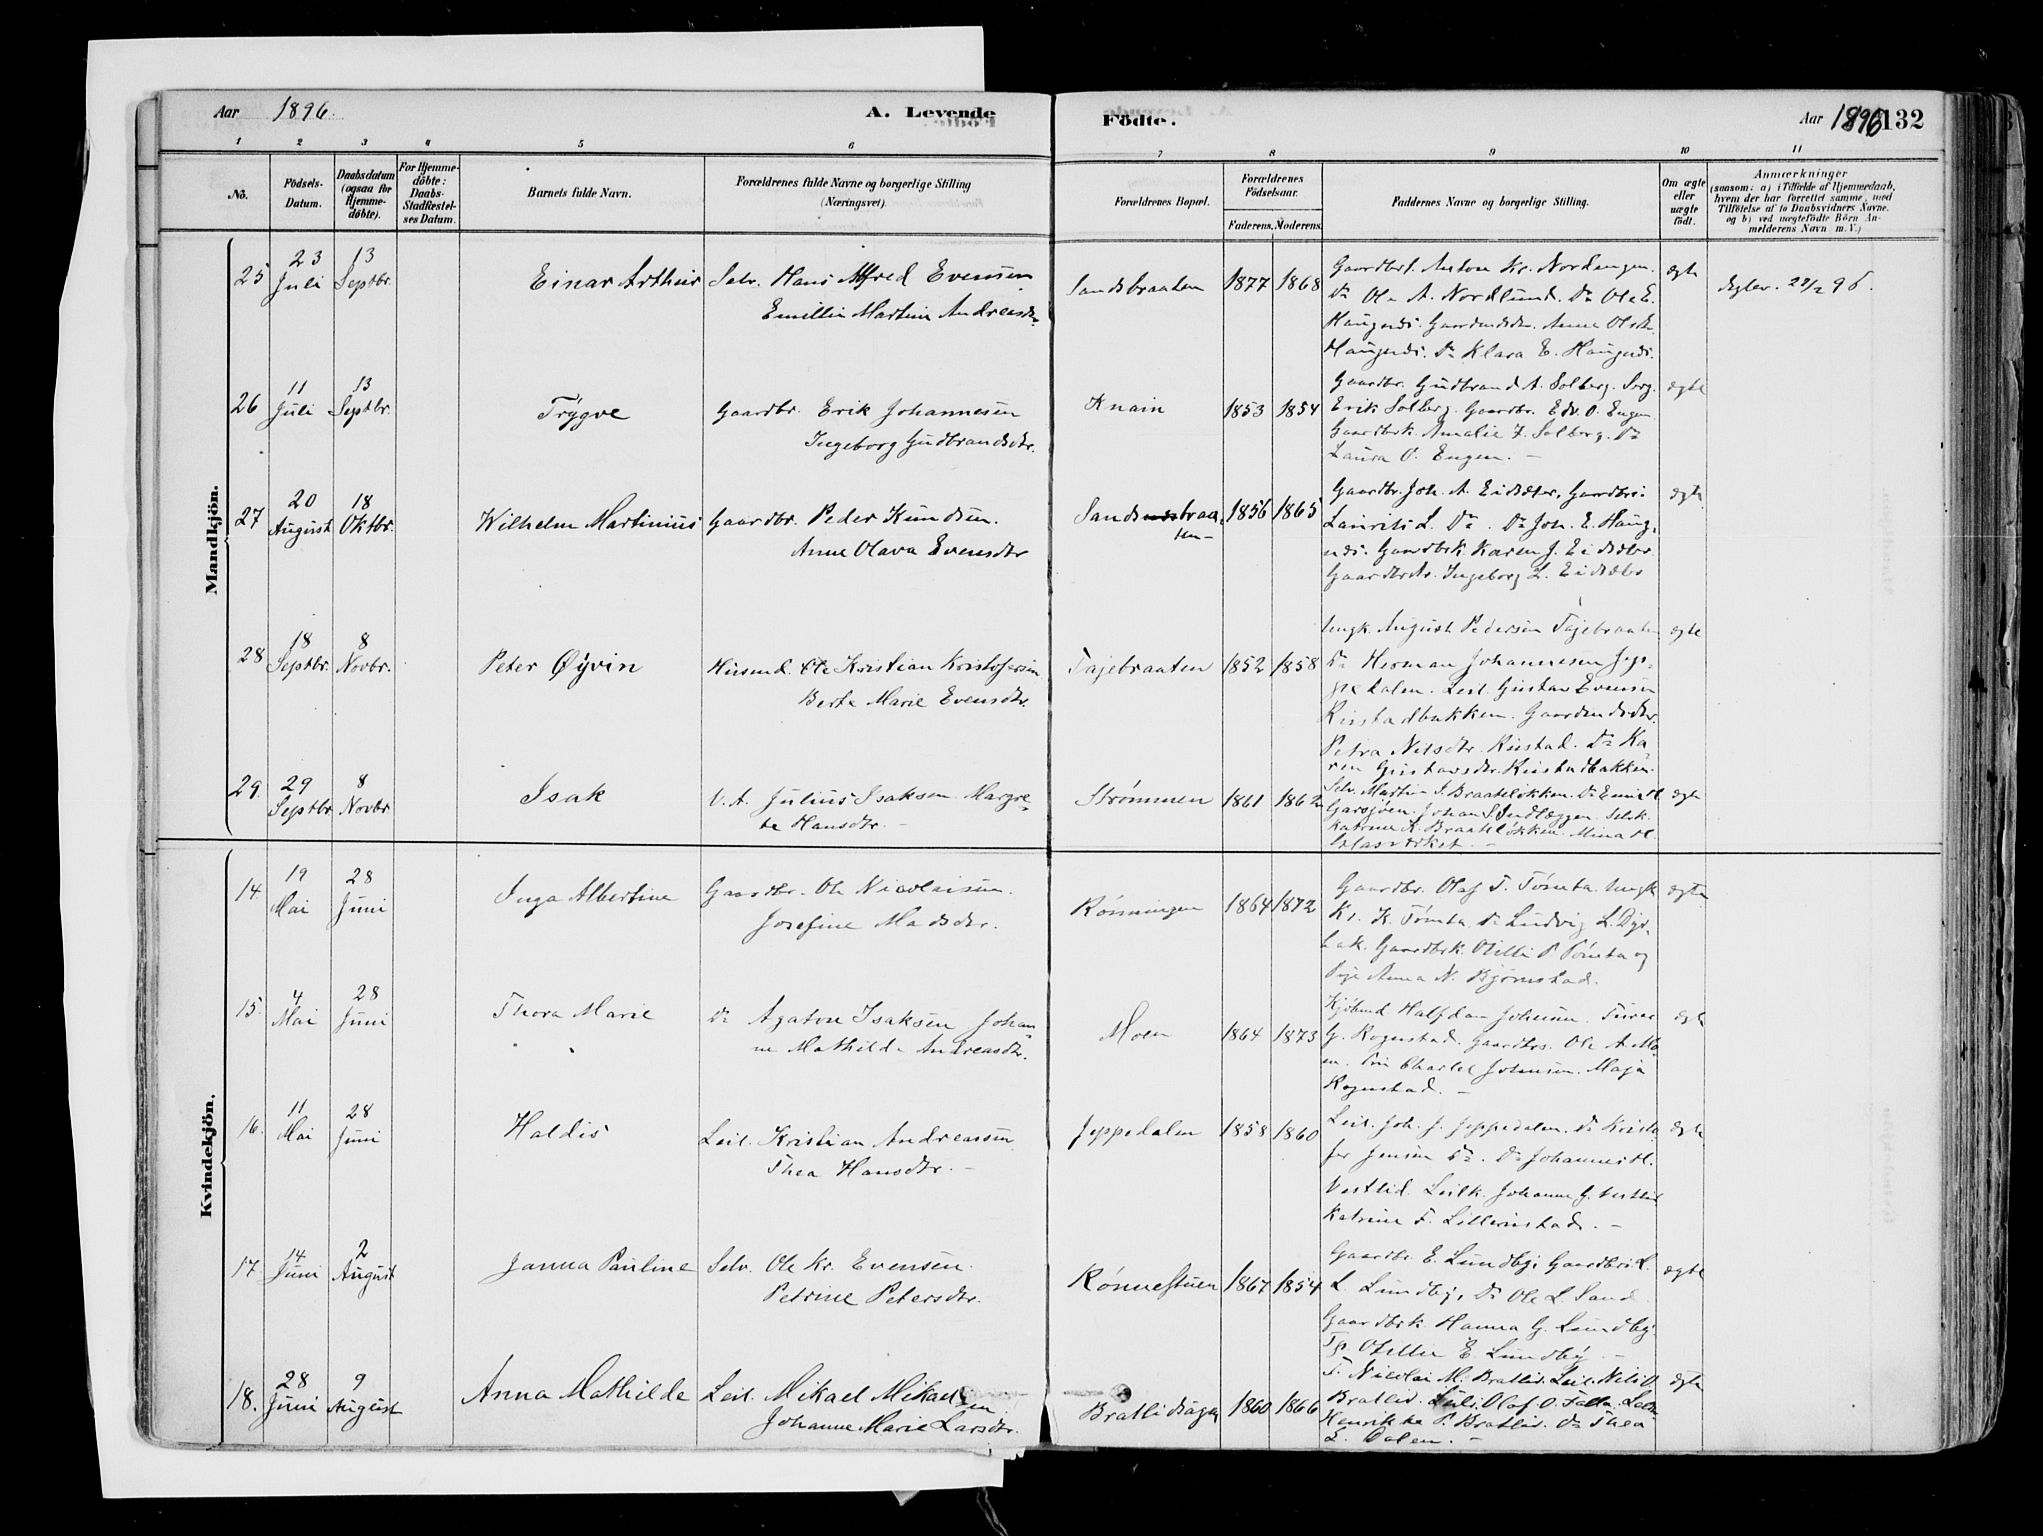 Aar 1896. A. Levende
Födte. Aar 1896 132
1 2 3 4 5 6 7 8 9 10 11
No.
Födsels-
Datum.
Daabsdatum
(ogsaa for
Hjemme-
döbte).
For Hjemme-
döbte:
Daabs-
Stadfæstel-
ses Datum.
Barnets fulde Navn.
Forældrenes fulde Navne og borgerlige Stilling
(Næringsvei).
Forældrenes Bopæl.
Forældrenes
Födselsaar.
Faderens. Moderens.
Faddernes Navne og borgerlige Stilling.
Om ægte
eller
uægte
födt.
Anmærkninger
(saasom: a) i Tilfælde af Hjemmedaab,
hvem der har forrettet samme, med
Tilföielse af to Daabsvidners Navne.
og b) ved uægtefödte Börn An-
melderens Navn m. V.)
Mandkjön.
25 23 Juli 13 Septbr. Einar Arthur
Selv. Hans Alfred Evensen
Emillie Martine Andreasdr.
Sandsbraaten 1877 1868
Gaardbr. Anton Kr. Nordengen.
Do Ole A. Nordlund. Do Ole E.
Haugnæs. Gaardmdsdtr. Anna Olsdr.
Haugnæs. Do Klara E. Haugnæs.
ægte
26 11 Juli 13 Septbr. Trÿgve
Gaardbr. Erik Johannesen
Ingeborg Gudbrandsdtr.
Knain 1853 1854
Gaardbr. Gudbrand A. Solberg. Serg.
Erik Solberg. Gaardbr. Edv. O. Engen
Gaardbrk. Amalie Solberg. Do
Laura O. Engen. —
ægte
27 20 August 18 Oktbr. Wilhelm Martinius
Gaardbr. Peder Knudsen.
Anne Olava Evensdtr
Sandsbraa-
ten— 1856 1865
Gaardbr. Joh. A. Eidsæter, Gaardbr.
Laurits L. Do. Do Joh. E. Haug-
næs. Gaardbrk. Karen J. Eidsæter
Ingeborg L. Eidsæter
ægte
28 18 Septbr. 8 Novbr. Peter Øÿvin
Husmd. Ole Kristian Kristofersen
Berte Marie Evensdtr.
Tajebraaten 1852 1858
Ungk. August Pedersen Tajebraaten
Do Herman Johannesen Jep-
pedalen. Leil. Gustav Evensen
Rustadbakken. Gaardmdsdtr.
Petra Nilsdtr. Rustad. Do Ka-
ren Gustavsdtr. Rustadbakken.
ægte
29. 29 Septbr 8 Novbr Isak
V. A. Julius Isaksen. Margre-
te Hansdtr. —
Strømmen 1861 1862
Selv. Martin S. Braateløkken. Do
Johan S.
Katrine K. Braateløkken. Mina H.
Glasværket. —
ægte
Kvindekjön.
14. 19 Mai 28 Juni Inga Albertine
Gaardbr. Ole Nicolaisen.
Josefine Madsdtr.
Rönningen 1864 1872
Gaardbr. Olaf T. Tømta. Ungk
Kr. K. Tømta. Do Ludvig L. Dys-
bak. Gaardbrk. Otilli P. Tømta og
Pige Anna N. Bjørnstad.
ægte.
15. 4 Mai 28 Juni Thora Marie
Do Agaton Isaksen Johan
ne Mathilde Andreasdtr.
Moen 1864 1873
Kjøbmd Halfdan Johnsen.
G. Rognstad. Gaardbrs. Ole A. Mo-
en. Johnsen. Maja
Rognstad. —
ægte
16. 11 Mai 28 Juni Haldis
Leil. Kristian Andreassen
Thea Hansdtr. —
Jeppedalen 1858 1860
Leil. Joh. J. Jeppedalen. Do Kristo-
fer Jensen Do. Do Johannes H.
Vestlid. Leilk. Johanne G. Vestlid
Katrine F. —
ægte
17 14 Juni 2 August Janna Pauline
Selv. Ole Kr. Evensen.
Petrine Petersdtr.
Rønnestuen 1867 1854
Gaardbr. E. Lundby, Gaardbr.
L. Lundby, Do Ole L. Sand
Gaardbrk Hanna G. Lundby
Otillie E. Lundby —
ægte
18. 28 Juni 9 August Anna Mathilde
Leil. Mikael Mikael
sen
Johanne Marie Larsdtr.
Bratlidsagen 1860 1866
T. Nicolai M. Bratlid. Leil. Nils O.
Bratlid. Olaf O. Falla.
Henrikke P. Bratlid. Do Thea
E. Dalen. —
ægte